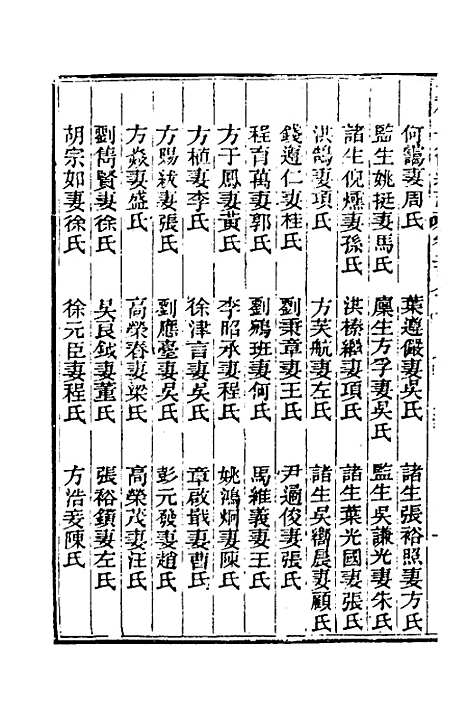 何鶴妻周氏 葉遵儼妻吳氏 諸生張裕照妻方氏
監生姚挺妻馬氏 廩生方孚妻吳氏 監生吳謙光妻朱氏
諸生倪燻妻孫氏 洪榛繼妻項氏 諸生葉光國妻張氏
洪鵠妻項氏 方芙航妻左氏 諸生吳嚮晨妻顧氏
錢遵仁妻桂氏 劉秉章妻王氏 尹過俊妻張氏
程育萬妻郭氏 劉鵷班妻何氏 馬維義妻王氏
方于鳳妻黃氏 李昭承妻程氏 姚鴻炯妻陳氏
方植妻李氏 徐津言妻吳氏 章啟戩妻曹氏
方賜紱妻張氏 劉應臺妻吳氏 彭元發妻趙氏
方焱妻盛氏 高榮春妻梁氏 高榮茂妻汪氏
劉儁賢妻徐氏 吳良鉞妻董氏 張裕鎮妻左氏
胡宗如妻徐氏 徐元臣妻程氏 方浩妾陳氏